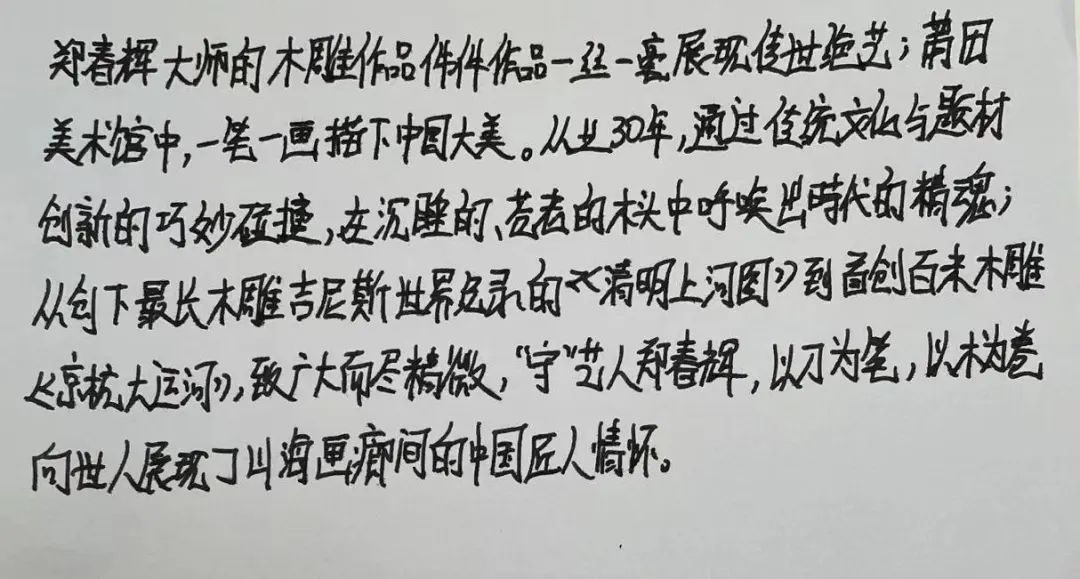 郑春辉大师的木雕作品件件作品一丝一毫展现传世绝艺；莆田
美术馆中，一笔一画描下中国大美。从业30年，通过传统文化与题材
创新的巧妙碰撞，在沉睡的、苍老的木头中呼唤出時代的精魂；
从创下最长木雕吉尼斯世界纪录的《清明上河图》到首创百米木雕
《京杭大运河》，致广大而尽精微，“守”艺人郑春辉，以刀为笔，以木为卷
向世人展现了山海画廊间的中国匠人情怀。